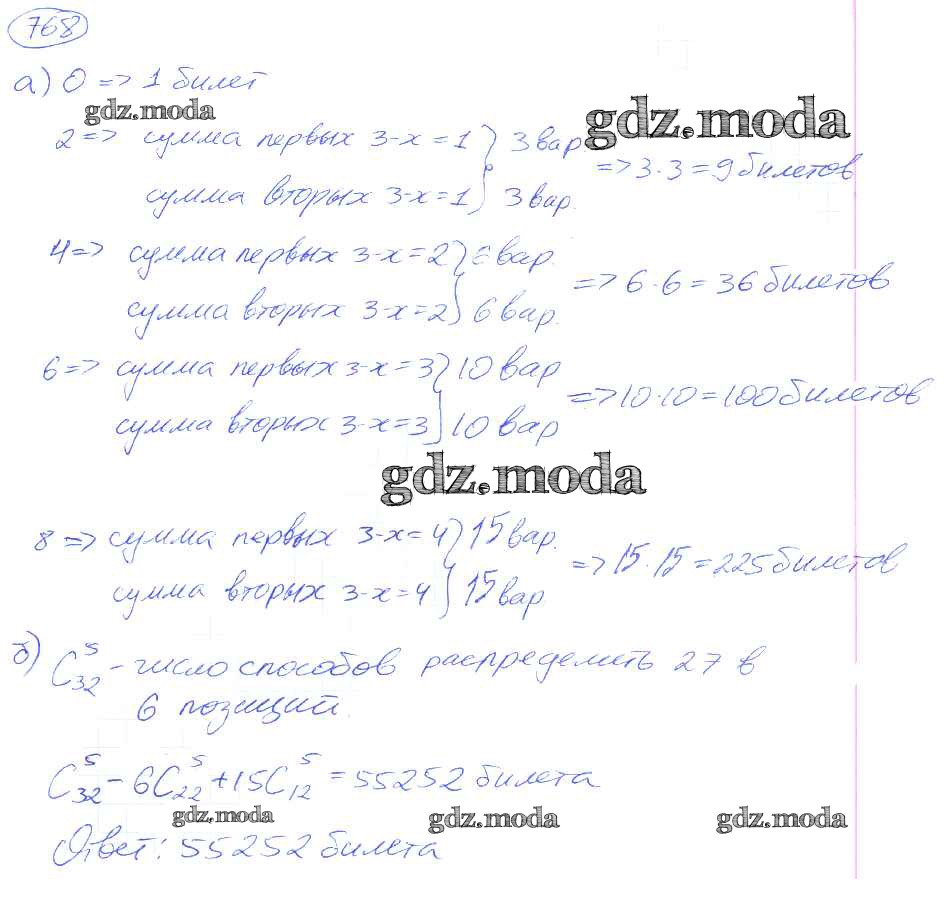 768
а) 0 => 1 билет
gdz.moda
gdz.moda
2 => сумма первых 3-х = 1 } 3 вар.
сумма вторых 3-х = 1 } 3 вар.
=> 3·3 = 9 билетов
4 => сумма первых 3-х = 2 } 6 вар.
сумма вторых 3-х = 2 } 6 вар.
=> 6·6 = 36 билетов
6 => сумма первых 3-х = 3 } 10 вар
сумма вторых 3-х = 3 } 10 вар
=> 10·10 = 100 билетов
gdz.moda
8 => сумма первых 3-х = 4 } 15 вар.
сумма вторых 3-х = 4 } 15 вар
=> 15·15 = 225 билетов
б) C₃₂⁵ - число способов распределить 27 в
6 позиций.
C₃₂⁵ - 6C₂₂⁵ + 15C₁₂⁵ = 55252 билета
gdz.moda
gdz.moda
gdz.moda
Ответ: 55252 билета